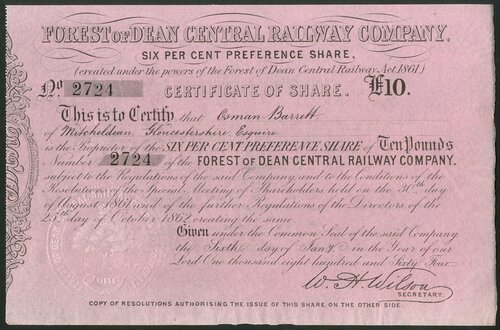 FOREST OF DEAN CENTRAL RAILWAY COMPANY.
SIX PER CENT PREFERENCE SHARE.
(created under the powers of the Forest of Dean Central Railway Act 1861)
No 2724 CERTIFICATE OF SHARE. £10.
This is to Certify that Osman Barrett
of Mitcheldean, Gloucestershire Esquire
is the Proprietor of the SIX PER CENT PREFERENCE SHARE of Ten Pounds
Number 2724 of the FOREST OF DEAN CENTRAL RAILWAY COMPANY.
subject to the Regulations of the said Company and to the Conditions of the
Resolution of the Special Meeting of Shareholders held on the 30th day
of August 1861 and of the further Regulations of the Directors of the
25th day of October 1862 creating the same.
Given under the Common Seal of the said Company
the Sixth day of in the Year of our
Lord One thousand eight hundred and Sixty Four
W. H. Wilson
SECRETARY.
COPY OF RESOLUTIONS AUTHORISING THE ISSUE OF THIS SHARE ON THE OTHER SIDE.